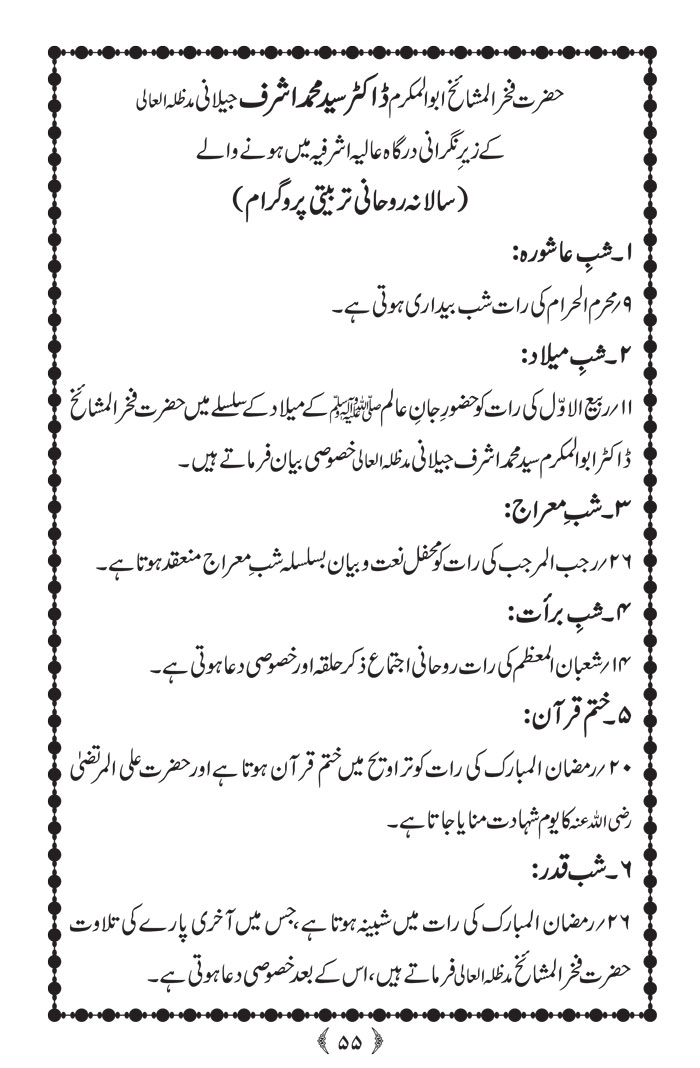 حضرت فخر المشائخ ابوالمکرم ڈاکٹر سید محمد اشرف جیلانی مدظلہ العالی
کے زیرِنگرانی درگاہ عالیہ اشرفیہ میں ہونے والے
(سالانہ روحانی تربیتی پروگرام)
۱۔شبِ عاشورہ:
۹؍محرم الحرام کی رات شب بیداری ہوتی ہے۔
۲۔شبِ میلاد:
۱۱؍ربیع الاوّل کی رات کو حضورِ جانِ عالم ﷺ کے میلاد کے سلسلے میں حضرت فخر المشائخ
ڈاکٹر ابوالمکرم سید محمد اشرف جیلانی مدظلہ العالی خصوصی بیان فرماتے ہیں۔
۳۔شبِ معراج:
۲۶؍رجب المرجب کی رات کو محفل نعت و بیان بسلسلہ شبِ معراج منعقد ہوتا ہے۔
۴۔شبِ برأت:
۱۴؍شعبان المعظم کی رات روحانی اجتماع ذکر حلقہ اور خصوصی دعا ہوتی ہے۔
۵۔ختم قرآن:
۲۰؍رمضان المبارک کی رات کو تراویح میں ختم قرآن ہوتا ہے اور حضرت علی المرتضیٰ
رضی اللہ عنہ کا یوم شہادت منایا جاتا ہے۔
۶۔شب قدر:
۲۶؍رمضان المبارک کی رات میں شبینہ ہوتا ہے، جس میں آخری پارے کی تلاوت
حضرت فخر المشائخ مدظلہ العالی فرماتے ہیں، اس کے بعد خصوصی دعا ہوتی ہے۔
﴿ ۵۵ ﴾